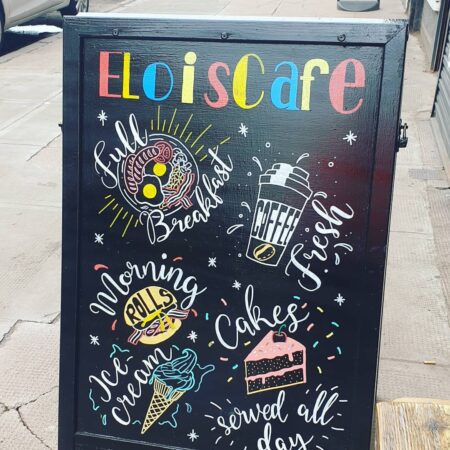 ELoisCafe
Full
Breakfast
COFFEE
Fresh
Morning
ROLLS
Cakes
Ice
cream
served all
day